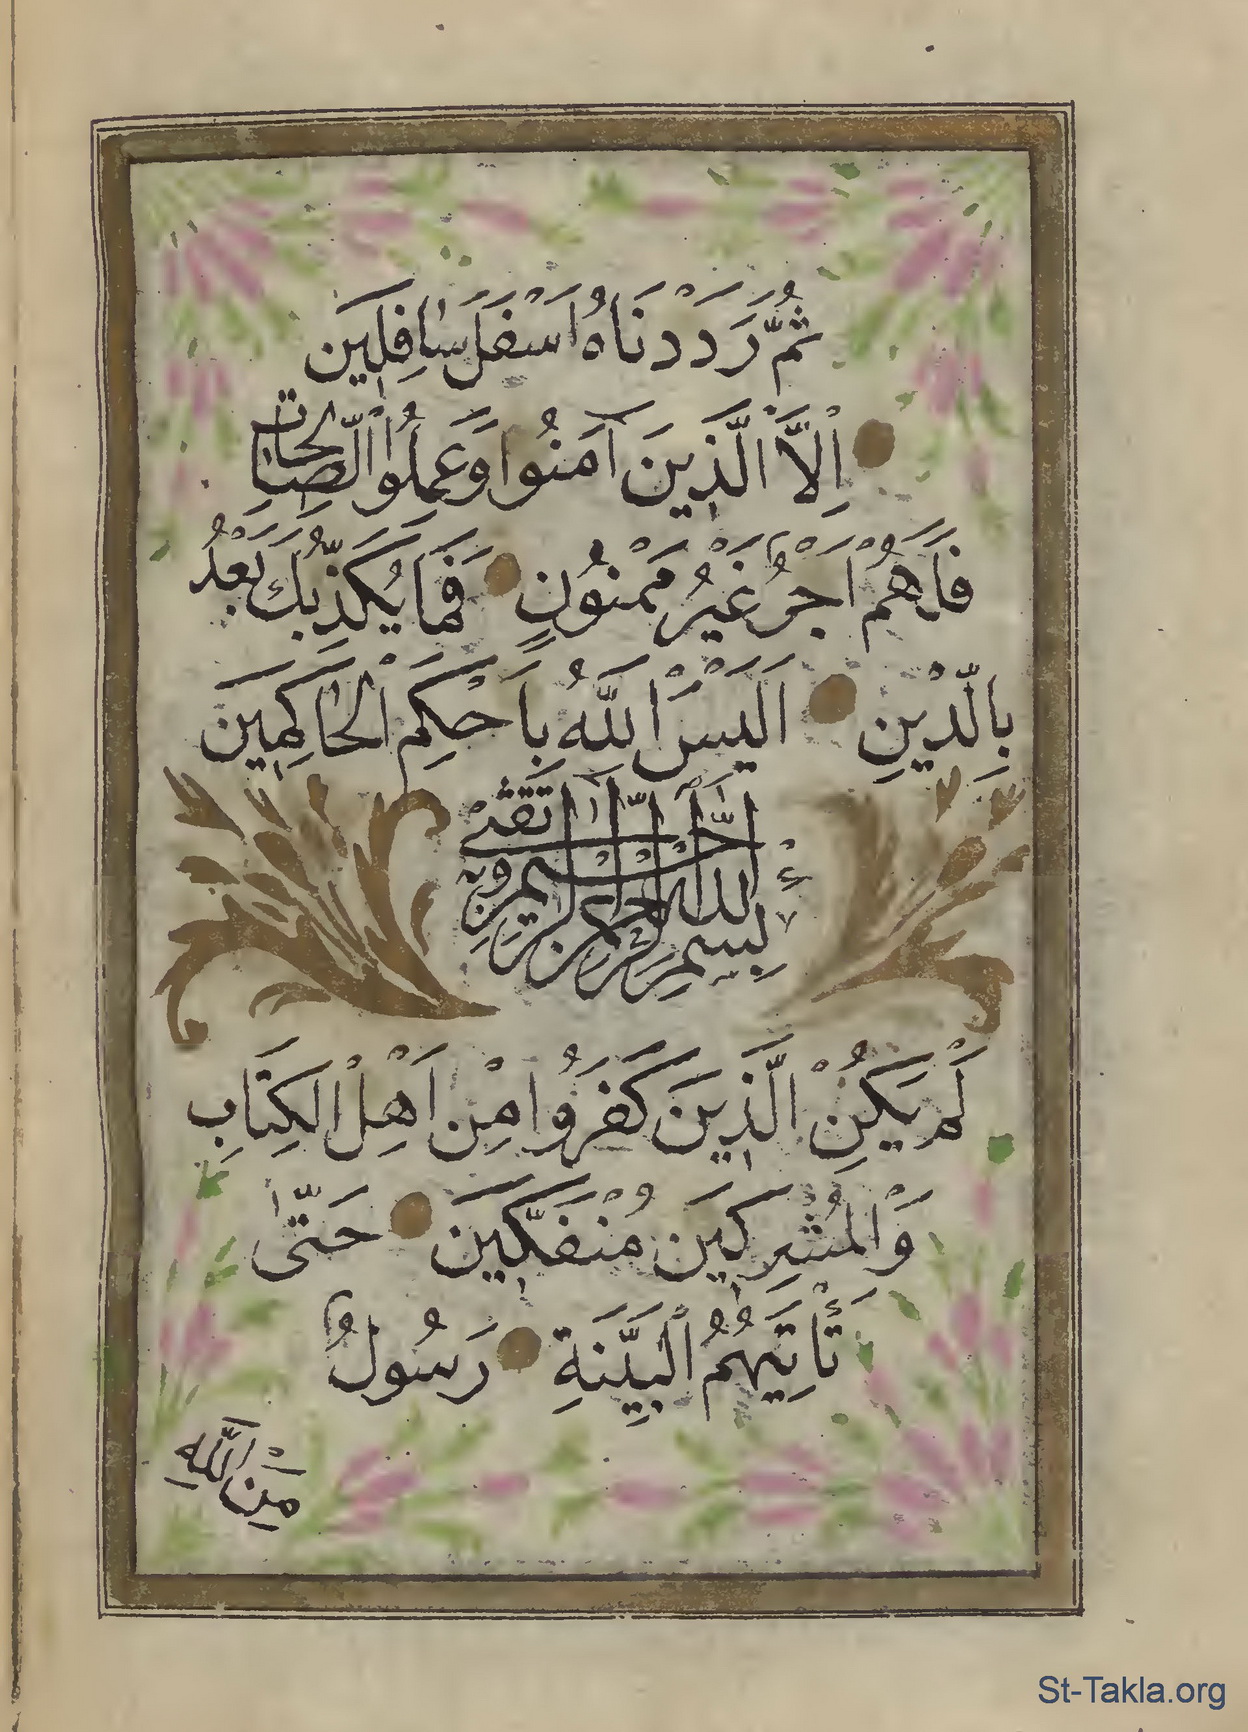 ثُمَّ رَدَدْنَاهُ اَسْفَلَ سَافِلِينَ
اِلَّا الَّذِينَ آمَنُوا وَعَمِلُوا الصَّالِحَاتِ
فَلَهُمْ اَجْرٌ غَيْرُ مَمْنُونٍ فَمَا يُكَذِّبُكَ بَعْدُ
بِالدِّينِ اَلَيْسَ اللّٰهُ بِاَحْكَمِ الْحَاكِمِينَ
بِسْمِ اللّٰهِ الرَّحْمٰنِ الرَّحِيمِ وَبِهِ ثِقَتِي
لَمْ يَكُنِ الَّذِينَ كَفَرُوا مِنْ اَهْلِ الْكِتَابِ
وَالْمُشْرِكِينَ مُنْفَكِّينَ حَتّٰى
تَأْتِيَهُمُ الْبَيِّنَةُ رَسُولٌ
مِنَ اللّٰهِ
St-Takla.org